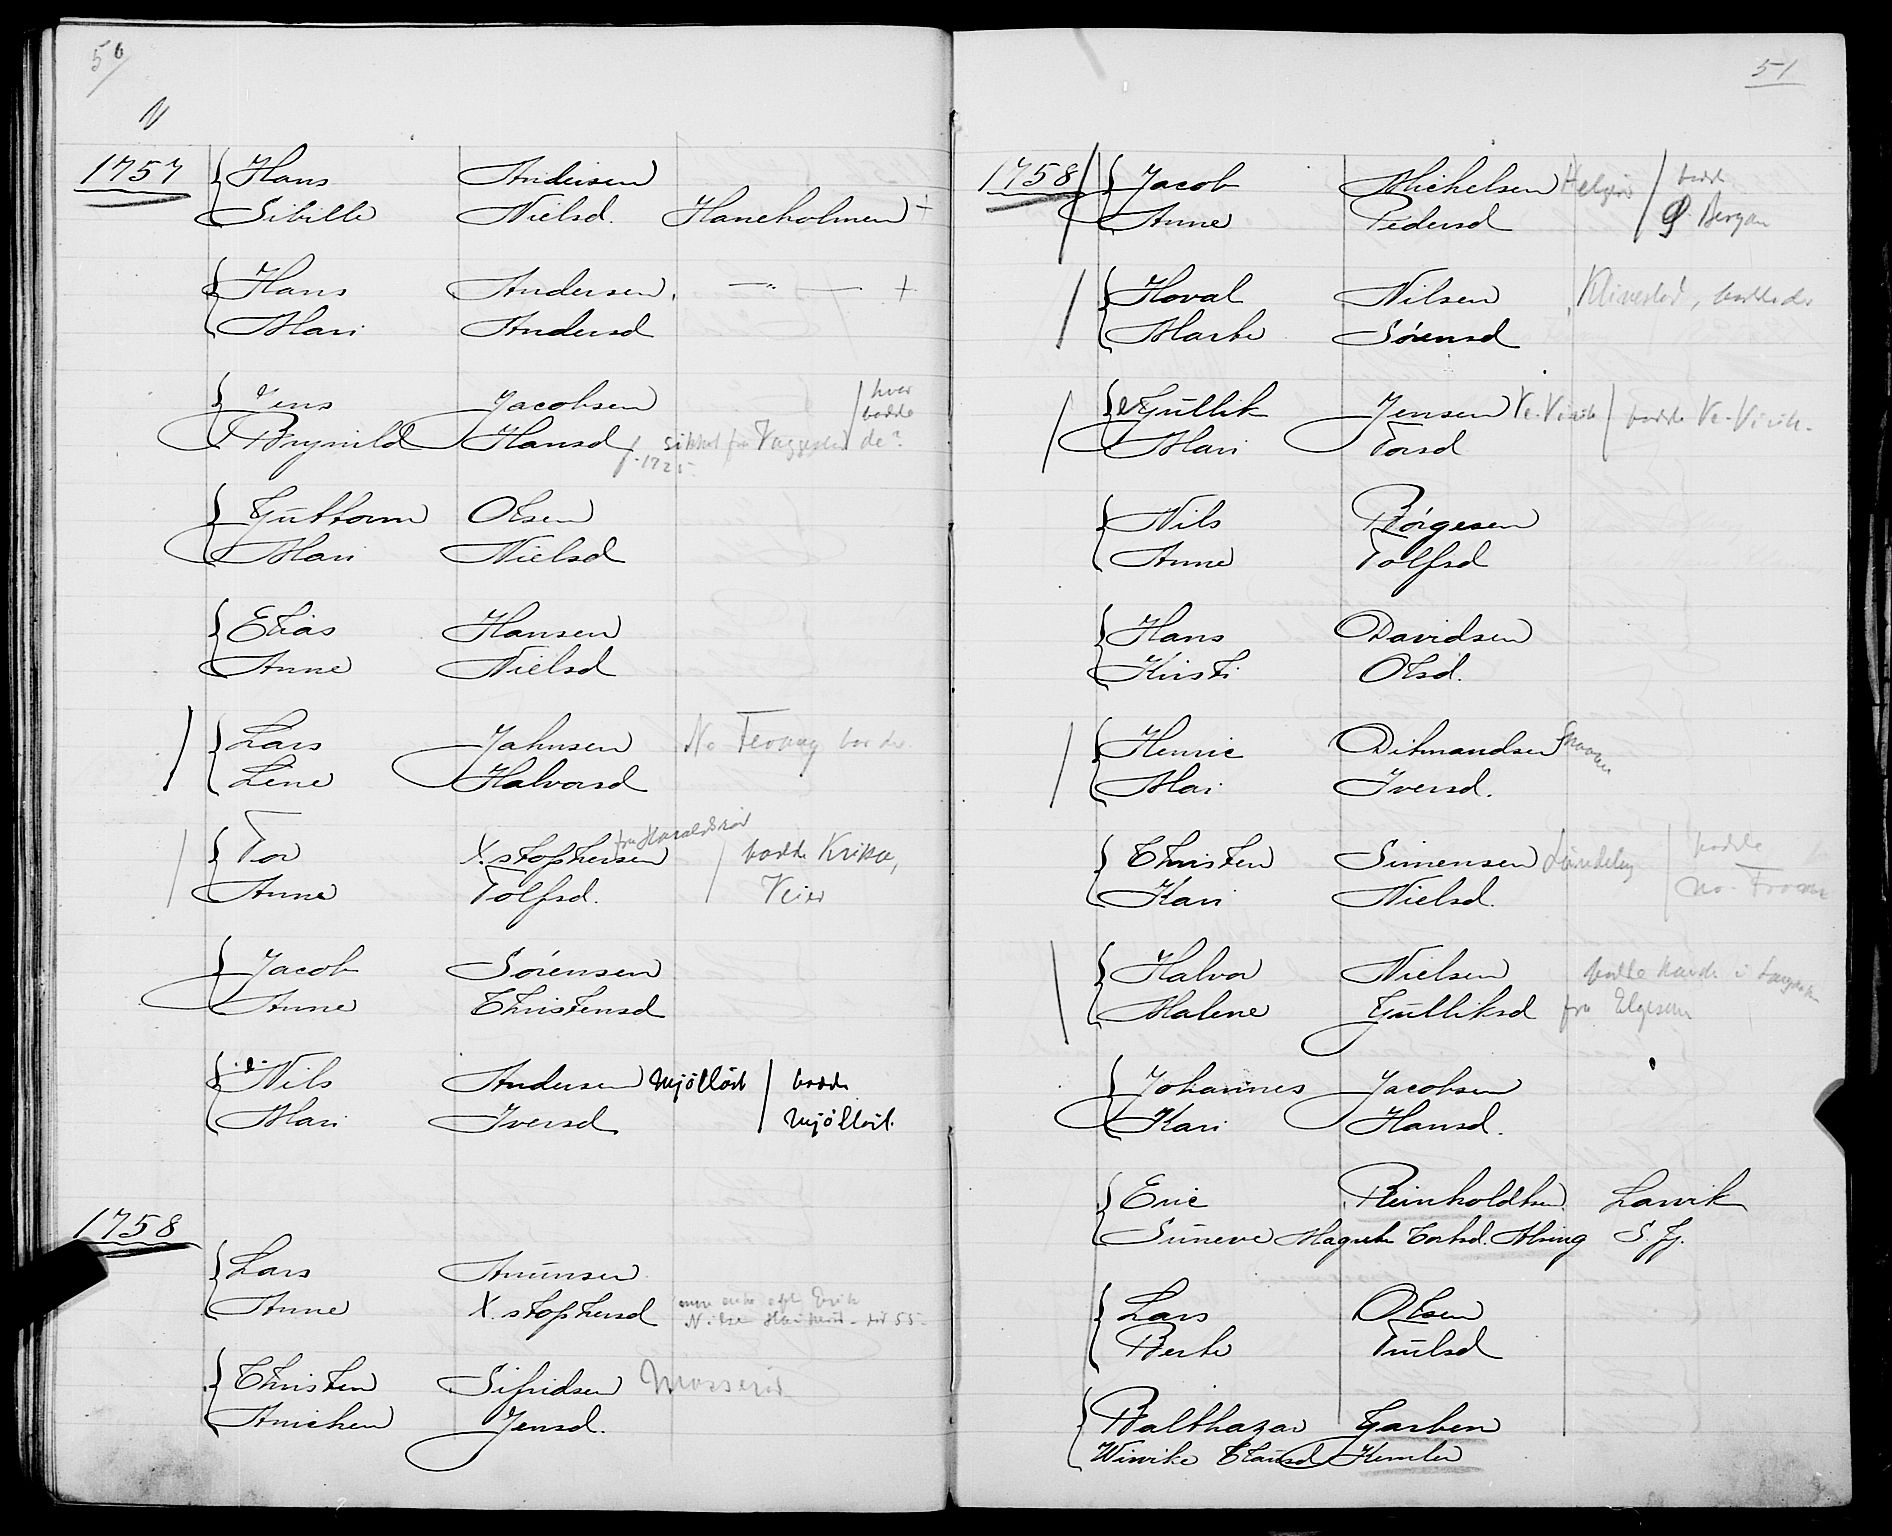 50
N
1757 Hans Andersen
Sibille Nielsd. Haneholmen +
Hans Andersen. —"— +
Mari Andersd
Jens Jacobsen hvor bodde
Brynild Hansd f. 1725 sikkert fra de?
Guttorm Olsen
Mari Nielsd
Elias Hansen
Anne Nielsd
Lars Jahnsen No
Line Halvorsd
Tor X.stophersen fra Haraldsrød bodde Krika,
Anne Tolfsd. Veier
Jacob Sörensen
Anne Christensd
Nils Andersen Mjölløst bodde
Mari Iversd Mjölløst.
1758
Lars Amunsen
Anne X.stophersd
Christen Sifridsen Mosserød
Anichen Jensd.
51
1758 Jacob Michelsen Helgerø bodde
Anne Pedersd Ø. Bergan
Hoval Nilsen Klinestad,
Marte Sörensd
Gullik Jensen Ve-Virik bodde Ve-Virik.
Mari Torsd
Nils Börgesen
Anne Tolfsd
Hans Davidsen
Kirsti Olsd.
Henric Ditmandsen
Mari Iversd.
Christen Simensen bodde
Kari Nielsd. No-
Halvor Nielsen bodte i
Malene Gulliksd fra Elgesem
Johannes Jacobsen
Kari Hansd.
Eric Reinholdtsen Larvik
Suneve Magrete Tortsd. Alsing S. Fj.
Lars Olsen
Berte Trulsd
Balthazar Garben
Wivike Clausd Kemler